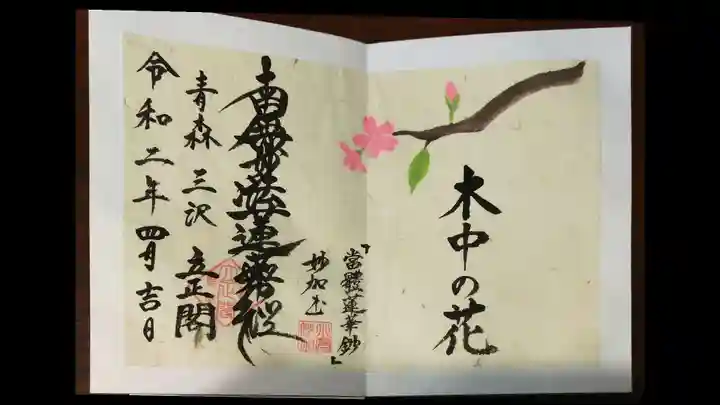 木中の花
『當體蓮華鈔』
妙加
南無妙法蓮華経
青森 三沢 立正閣
令和二年四月吉日